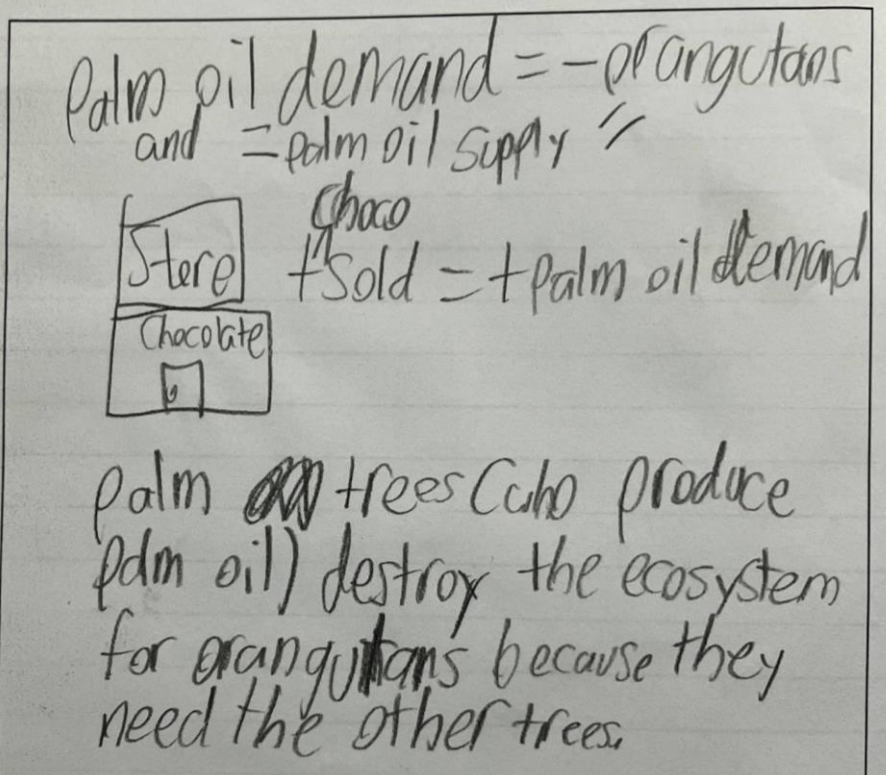 Palm oil demand = - orangutans
and = palm oil supply "
Choco
Store + sold = + palm oil demand
Chocolate
palm trees (who produce
palm oil) destroy the ecosystem
for orangutans because they
need the other trees.